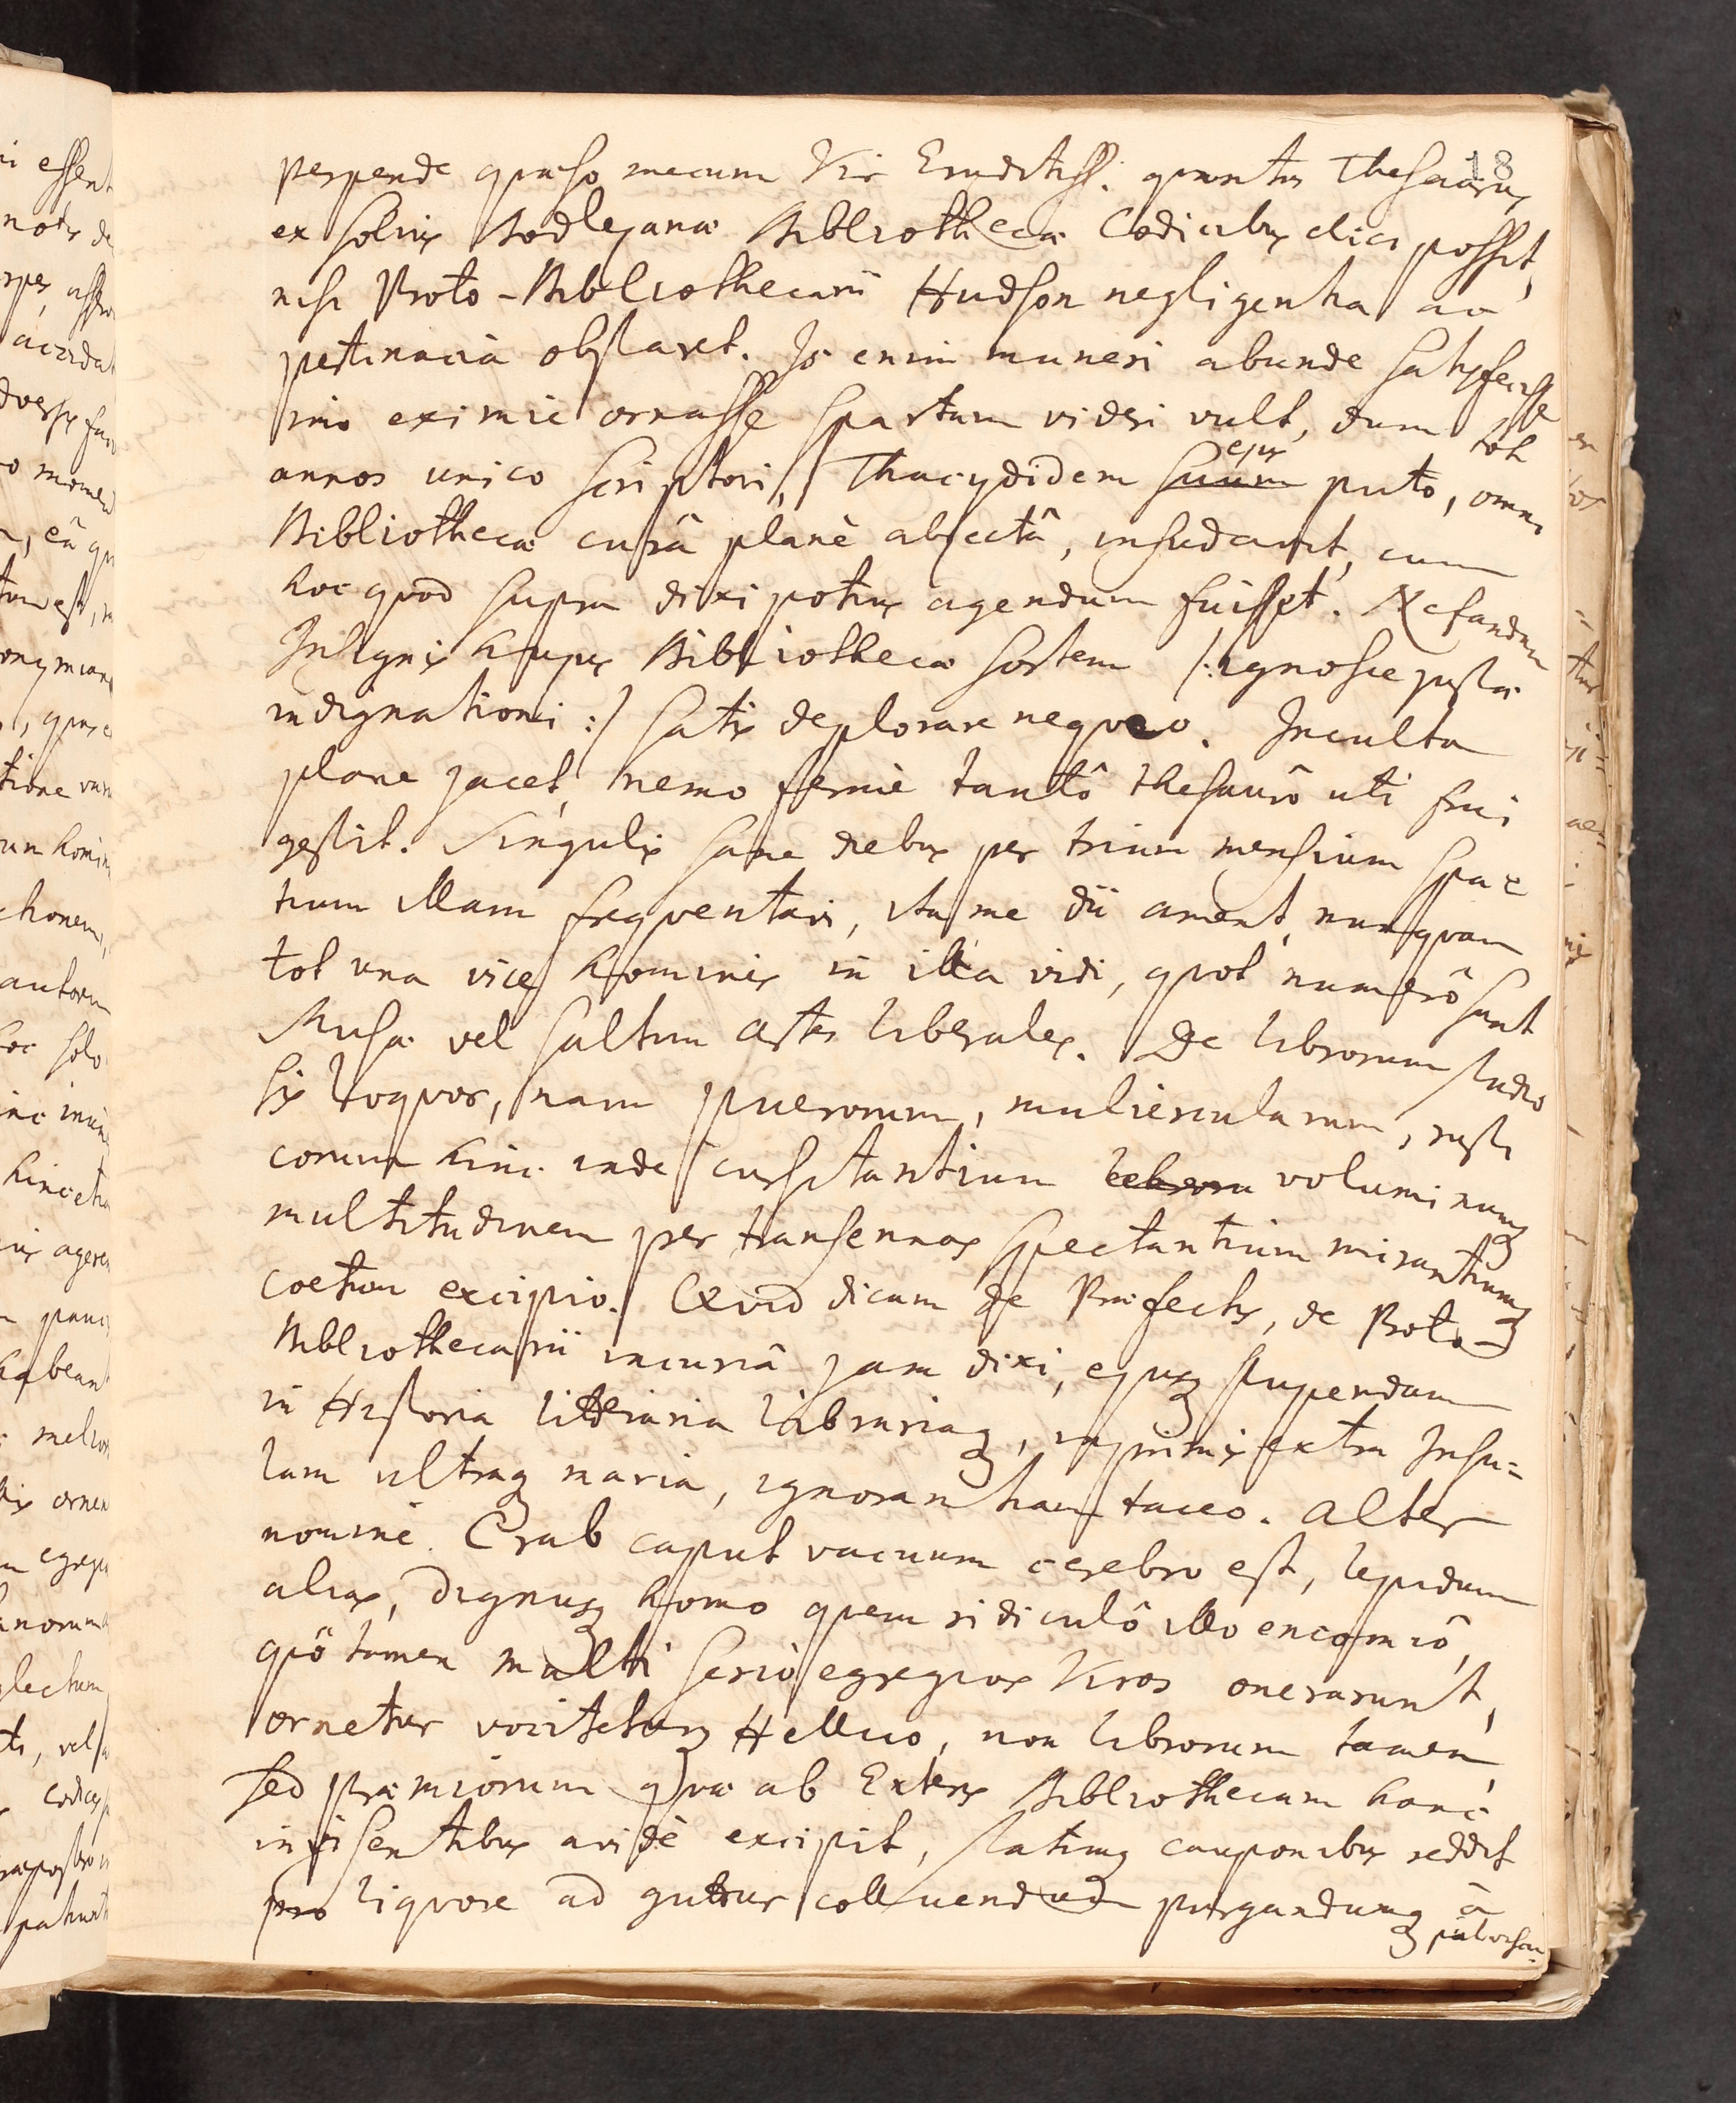 18
perpende quæso mecum Vir Eruditiss. quantus Thesaurus
ex solius Bodlejanæ Bibliothecæ Codicibus elici posset,
nisi Proto-Bibliothecarii Hudson negligentia ac
pertinacia obstaret. Is enim muneri abunde satisfecisse
imo eximie ornasse Spartam videri vult, dum tot
annos unico Scriptori, Thucydidem suum ejus puto, omni
Bibliothecæ curâ planè abjectâ, insudavit, cum
hoc quod supra dixi potius agendum fuisset. Nefandam
Insignis hujus Bibliothecæ sortem /: ignosce justæ
indignationi :/ satis deplorare nequeo. Inculta
plane jacet, nemo fermè tantô thesaurô uti frui
gestit. Singulis sane diebus per trium mensium spa=
tium illam frequentavi, ita me dii ament, nunquam
tot una vice homines in illa vidi, quot numerô sunt
Musæ vel saltim artes liberales. De librorum studio
sis loquor, nam puerorum, muliercularum, rusti
corum hinc inde cursitantium librorum voluminumq
multitudinem per transennas spectantium mirantiumq
coetum excipio. Quid dicam de Præfectis, de Proto-
Bibliothecarii incuriâ jam dixi, ejusq stupendam
in Historia litteraria librariaq, inprimis extra Insu=
lam ultraq maria, ignorantiam taceo. Alter
nomine Crab caput vacuum cerebro est, lepidum
alias, dignusq homo quem ridiculô illo encomiô,
quô tamen multi serió egregios Viros onerarunt,
ornetur vocitetурq Helluo, non librorum tamen,
sed præmiorum quæ ab Exteris Bibliothecam hanc
invisentibus avidè excipit, statimq cauponibus reddit
pro liquore ad guttur colluendum purgandumq à